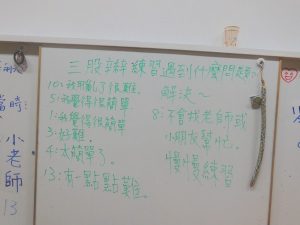 三股辮練習遇到什麼問題
10:我用亂了很難。
5:我覺得很簡單
1:我覺得很簡單
3:好難。
4:太簡單了。
13:有一點點難。
解決~
8:不會找老師或
小朋友幫忙。
慢慢練習
當時:
小老師
13